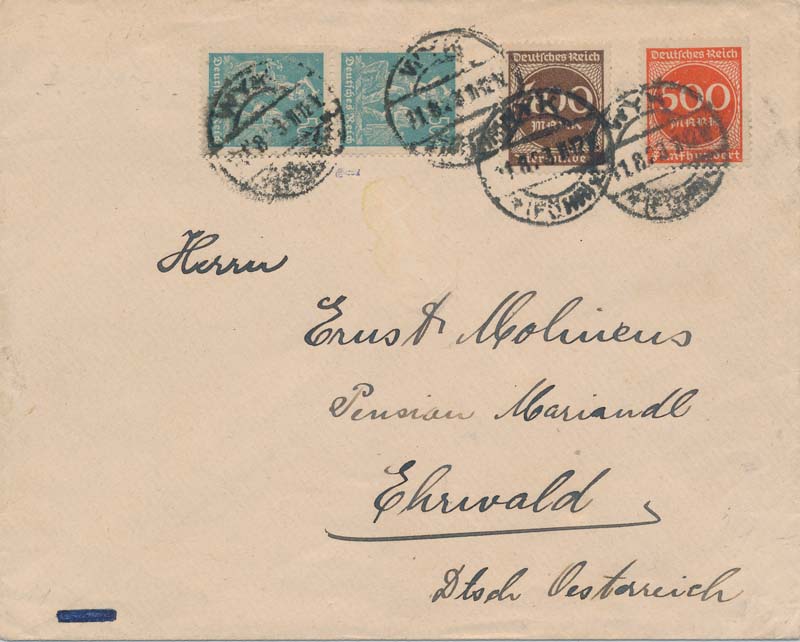 Deutsches Reich
Deutsches Reich
Deutsches Reich
MARK
Deutsches Reich
500
MARK
Fünfhundert
WYK
WYK
WYK
WYK
(FÖHR)
Herrn
Ernst Molinens
Pension Mariandl
Ehrwald
Dtsch Oesterreich